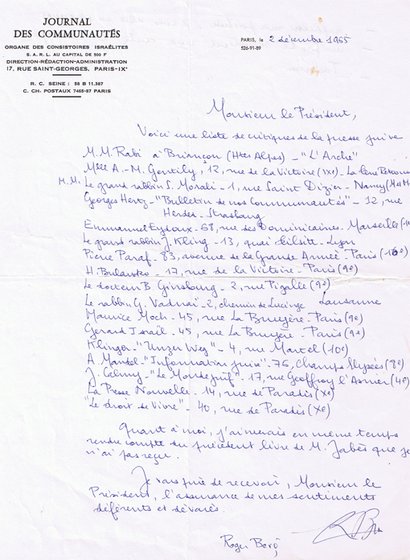 JOURNAL
DES COMMUNAUTÉS
ORGANE DES CONSISTOIRES ISRAÉLITES
S. A. R. L. AU CAPITAL DE 500 F
DIRECTION-RÉDACTION-ADMINISTRATION
17, RUE SAINT-GEORGES, PARIS-IXe
R. C. SEINE : 58 B 11.387
C. CH. POSTAUX 7465-97 PARIS
PARIS, le 2 décembre 1965
526-91-89
Monsieur le Président,
Voici une liste de critiques de la presse juive
M.M. Rabi à Briançon (Htes Alpes) - "L'Arche"
Mlle A.-M. Gentily, 12, rue de la Victoire (IXe) - La Terre Retrouvée
H.M. Le grand rabbin S. Morali - 1, rue Saint Dizier - Nancy
Georges Hertz - "Bulletin de nos Communautés" - 12, rue
Herder - Strasbourg
Emmanuel Eydoux - 68, rue des Dominicaines. Marseille
Le grand rabbin J. Kling - 13, quai Tilsitt - Lyon
Pierre Paraf - 83, avenue de la Grande Armée - Paris (16e)
H. Boulawko - 17, rue de la Victoire - Paris (9e)
Le docteur B. Ginsbourg - 2, rue Pigalle (9e)
Le rabbin G. Vadnaï - 2, chemin de Lucinge Lausanne
Maurice Moch - 45, rue La Bruyère - Paris (9e)
Gérard Israël - 45, rue La Bruyère - Paris (9e)
Klinger - "Unzer Weg" - 4, rue Martel (10e)
A. Mandel "Information juive" - 76, Champs Élysées (8e)
J. - "Le Monde juif" - 17, rue Geoffroy l'Asnier (4e)
"La Presse Nouvelle - 14, rue de Paradis (Xe)
"Le droit de Vivre" - 40, rue de Paradis (Xe)
Quant à moi, j'aimerais en même temps
rendre compte du précédent livre de M. Jabès que je
n'ai pas reçu.
Je vous prie de recevoir, Monsieur le
Président, l'assurance de mes sentiments
déférents et dévoués.
Roger Berg